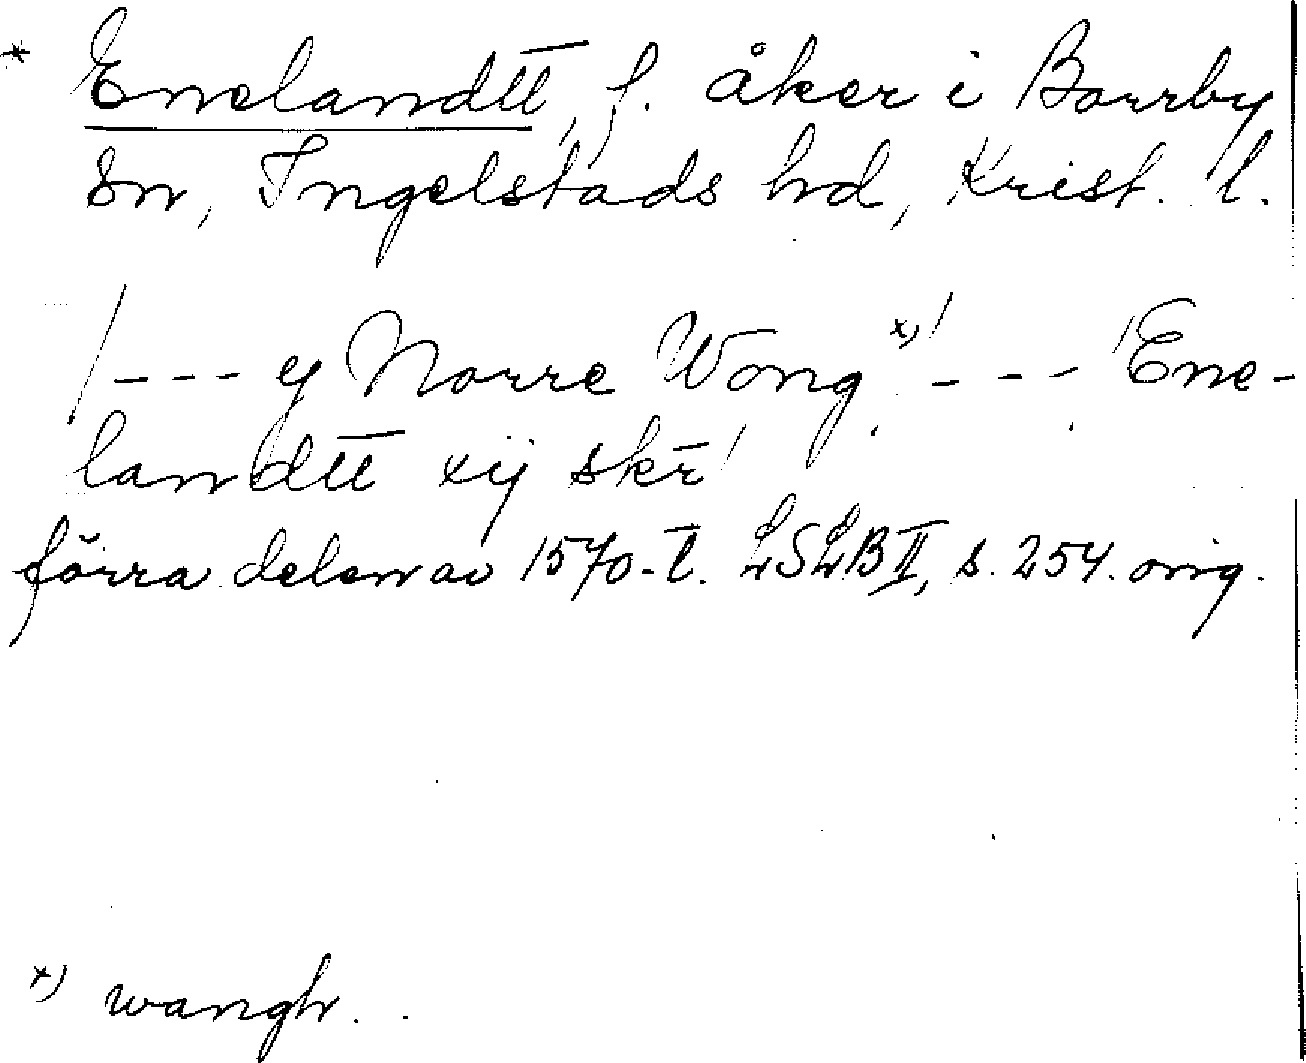 * Enelandtt, f. åker i Borrby
sn, Ingelstads hd, Krist. l.
/--- y Norre Wong x) / --- /Ene-
landtt xij skr̄ /
förra delen av 1570-t. LSLB II, s. 254. orig.
x) wangh.